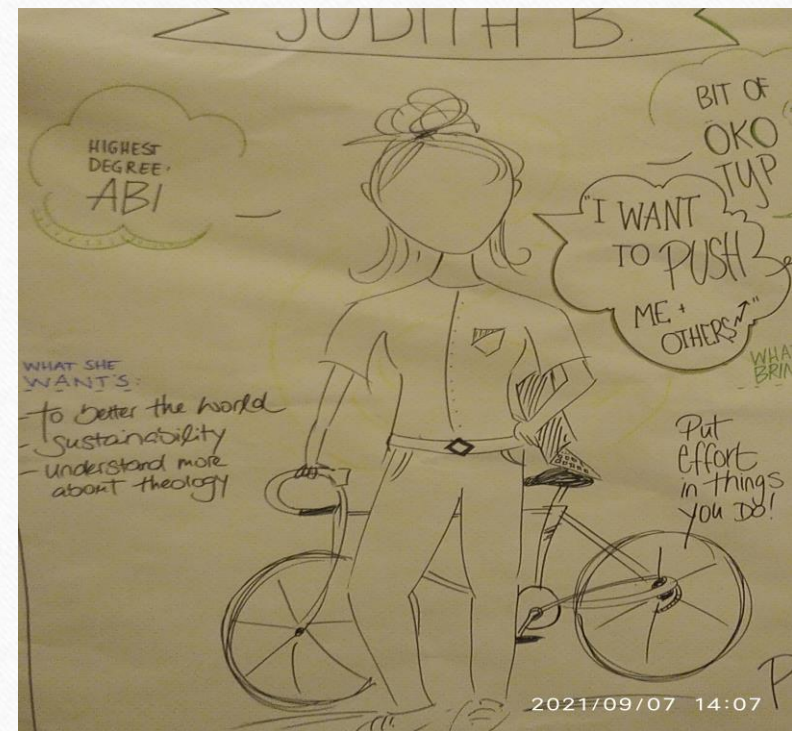 JUDITH B.
HIGHEST
DEGREE:
ABI
BIT OF
ÖKO
TYP
"I WANT
TO PUSH
ME +
OTHERS"
WHAT SHE
WANTS:
- to better the world
- sustainability
- understand more
about theology
Put
effort
in things
you DO!
2021/09/07 14:07